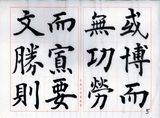 或博而
無功勞
而寡要
文勝則
5